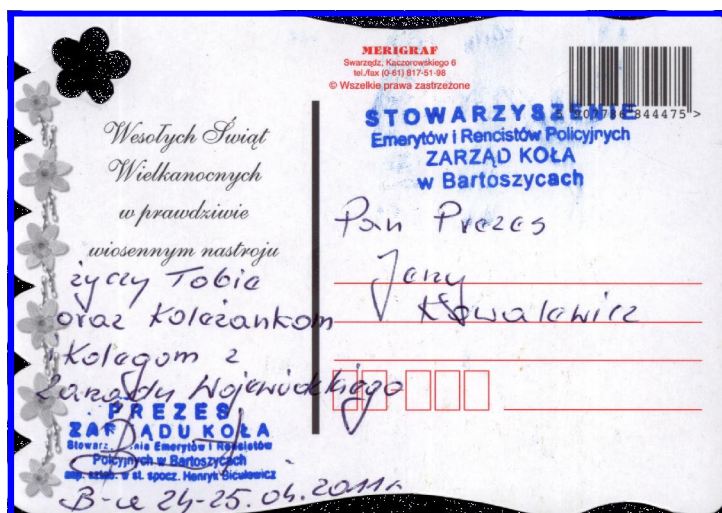 MERIGRAF
Swarzędz, Kaczorowskiego 6
tel./fax (0-61) 817-51-98
© Wszelkie prawa zastrzeżone
STOWARZYSZENIE
Emerytów i Rencistów Policyjnych
ZARZĄD KOŁA
w Bartoszycach
Wesołych Świąt
Wielkanocnych
w prawdziwie
wiosennym nastroju
życzy Tobie
oraz Koleżankom
i Kolegom z
Zarządu Wojewódzkiego
PREZES
ZARZĄDU KOŁA
Stowarzyszenia Emerytów i Rencistów
Policyjnych w Bartoszycach
w st. spocz. Henryk
B-ce 24-25.04.2011r.
Pan Prezes
Jerzy
Kowalewicz